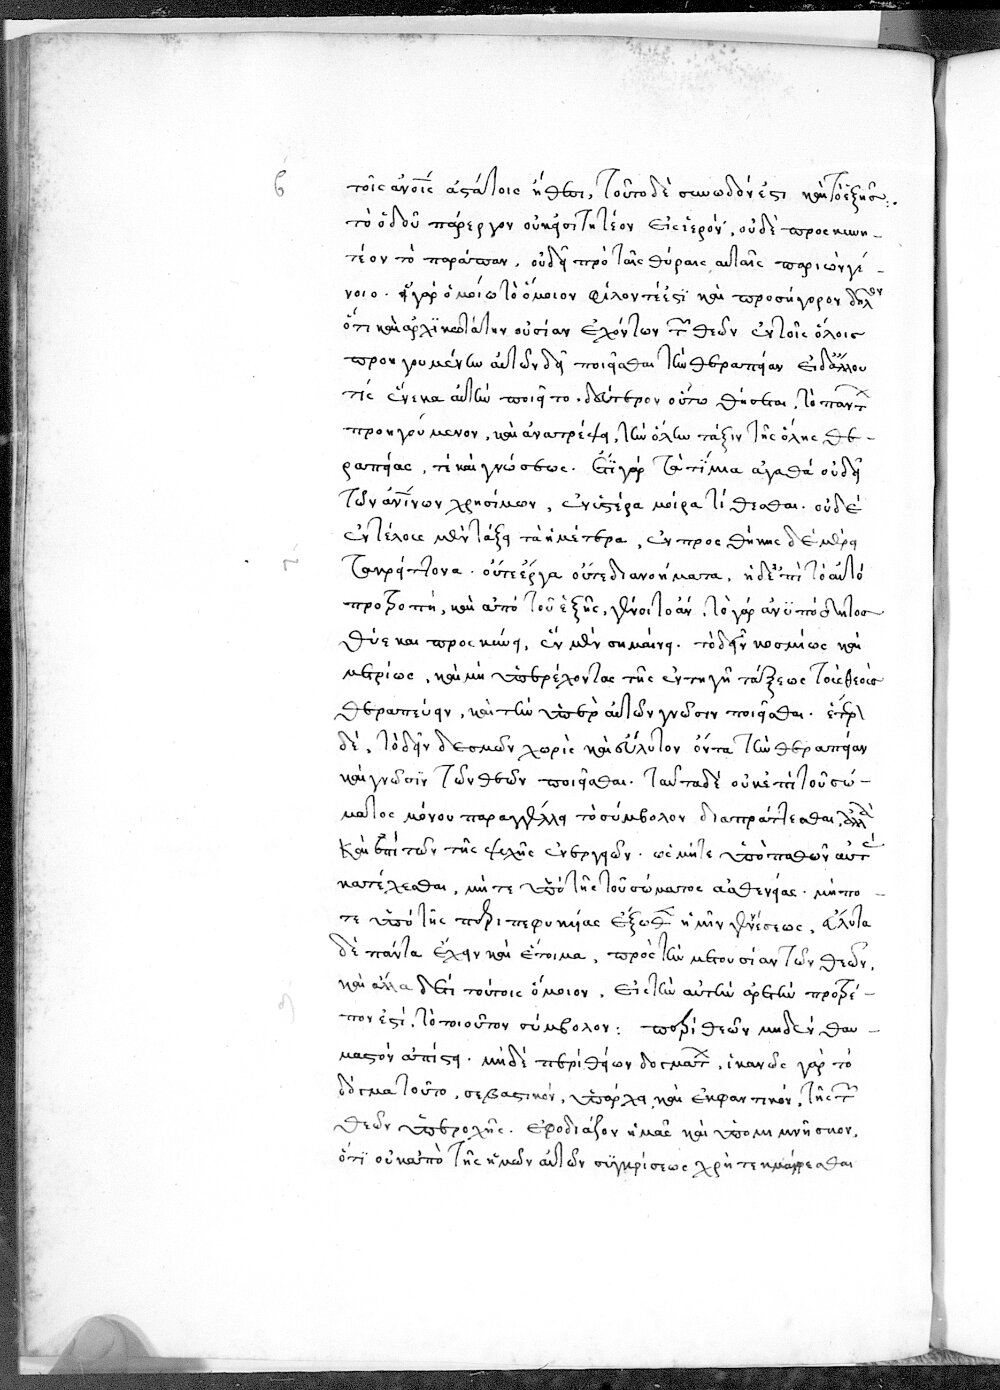 τοῖς ἀνοῖς ἀστάτοις ἤθεσι, τοῦτο δὲ συνωδόν ἐστι καὶ τὸ ἑξῆς:
τὸ ὁδοῦ πάρεργον οὐκ εἰσιτητέον εἰς ἱερόν, οὐδὲ προσκυνη-
τέον τὸ παράπαν, οὐδ' εἰ πρὸ ταῖς θύραις αὐταῖς παριὼν γέ-
νοιο. εἰ γὰρ ὁμοίω τὸ ὅμοιον φίλον τέ ἐστϊ καὶ προσήγορον δῆλον
ὅτι καὶ ἀρχϊκωτάτην οὐσίαν ἐχόντων τῶν θεῶν ἐν τοῖς ὅλοις
προηγουμένην αὐτῶν δεῖ ποιεῖσθαι τὴν θεραπείαν εἰ δ' ἄλλου
τίς ἕνεκα αὐτὴν ποιεῖτο. δεύτερον οὕτω θήσεται, τὸ πάντων
προηγούμενον, καὶ ἀνατρέψει, τὴν ὅλην τάξιν τῆς ὅλης θε-
ραπείας, τὲ καὶ γνώσεως. ἔτϊ γὰρ τὰ τϊμια ἀγαθὰ οὐ δεῖ
τῶν ἀνΐνων χρησίμων, ἐν ὑστέρα μοίρα τίθεσθαι. οὐδὲ
ἐν τέλους μὲν τάξει τὰ ἡμέτερα, ἐν προσθήκης δὲ μέρει
τὰ κρείττονα. οὔτε ἔργα οὔτε διανοήματα, ἡ δ' ἐπὶ τὸ αὐτὸ
προτροπὴ, καὶ ἀπὸ τοῦ ἑξῆς, γένοιτο ἂν, τὸ γὰρ ἀνϋπόδητος
θύε καὶ προσκύνει, ἓν μὲν σημαίνει. τὸ δεῖν κοσμίως καὶ
μετρίως, καὶ μὴ ὑπερέχοντας τῆς ἐν τῆ γῆ τάξεως τοὺς θεοὺς
θεραπεύειν, καὶ τὴν ὑπὲρ αὐτῶν γνῶσιν ποιεῖσθαι. ἕτερον
δὲ, τὸ δεῖν δεσμῶν χωρὶς καὶ εὔλυτον ὄντα τὴν θεραπείαν
καὶ γνῶσϊν τῶν θεῶν ποιεῖσθαι. ταῦτα δὲ οὐκ ἐπὶ τοῦ σώ-
ματος μόνου παραγγέλλει τὸ σύμβολον διαπράττεσθαι, ἀλλὰ
καὶ ἐπὶ τῶν τῆς ψυχῆς ἐνεργειῶν. ὡς μήτε ὑπὸ παθῶν αὐτὰς
κατέχεσθαι, μήτε ὑπὸ τῆς τοῦ σώματος ἀσθενείας. μήπο-
τε ὑπὸ τῆς περιπεφυκυίας ἔξωθεν ἡμῖν γενέσεως, εὔλυτα
δὲ πάντα ἔχειν καὶ ἕτοιμα, πρὸς τὴν μετουσίαν τῶν θεῶν,
καὶ ἄλλο δ' ἐστι τούτοις ὅμοιον, εἰς τὴν αὐτὴν ἀρετὴν προτρέ-
πον ἐστί, τὸ τοιοῦτον σύμβολον: περὶ θεῶν μηδὲν θαυ-
μαστὸν ἀπίστει. μηδὲ περὶ θείων δογμάτων, ἱκανῶς γὰρ τὸ
δόγμα τοῦτο, σεβαστικόν, ὑπάρχει καὶ ἐκφαντικόν, τῆς τῶν
θεῶν ὑπεροχῆς. ἐφοδιάζον ἡμᾶς καὶ ὑπομιμνῆσκον,
ὅτϊ οὐκ ἀπὸ τῆς ἡμῶν αὐτῶν συγκρίσεως χρὴ τεκμαίρεσθαι